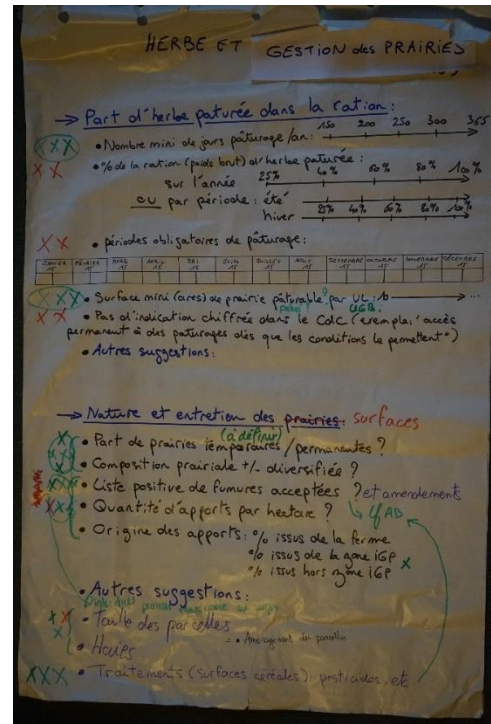 HERBE ET GESTION des PRAIRIES
→ Part d'herbe paturée dans la ration :
• Nombre mini de jours pâturage/an: 150 200 250 300 365
• % de la ration (poids brut) d'herbe paturée :
sur l'année 25% 40% 60% 80% 100%
ou par période : été
hiver 25% 40% 60% 80% 100%
XX • périodes obligatoires de pâturage :
JANVIER FÉVRIER MARS AVRIL MAI JUIN JUILLET AOUT SEPTEMBRE OCTOBRE NOVEMBRE DÉCEMBRE
15 15 15 15 15 15 15 15 15 15 15 15
XXX • Surface mini (ares) de prairie pâturable ? par UL :
UGB.
XX • Pas d'indication chiffrée dans le CdC (exemple, "accès
permanent à des paturages dès que les conditions le permettent")
• Autres suggestions :
→ Nature et entretien des prairies. surfaces
(à définir)
• Part de prairies temporaires/permanentes ?
• Composition prairiale +/- diversifiée ?
• Liste positive de fumures acceptées ? et amendements
• Quantité d'apports par hectare ? ↳ cf AB
• Origine des apports : % issus de la ferme
% issus de la zone iGP X
% issus hors zone iGP
• Autres suggestions :
XX • Taille des parcelles
• Aménagement des parcelles
X • Haies
XXX • Traitements (surfaces céréales) : pesticides, etc